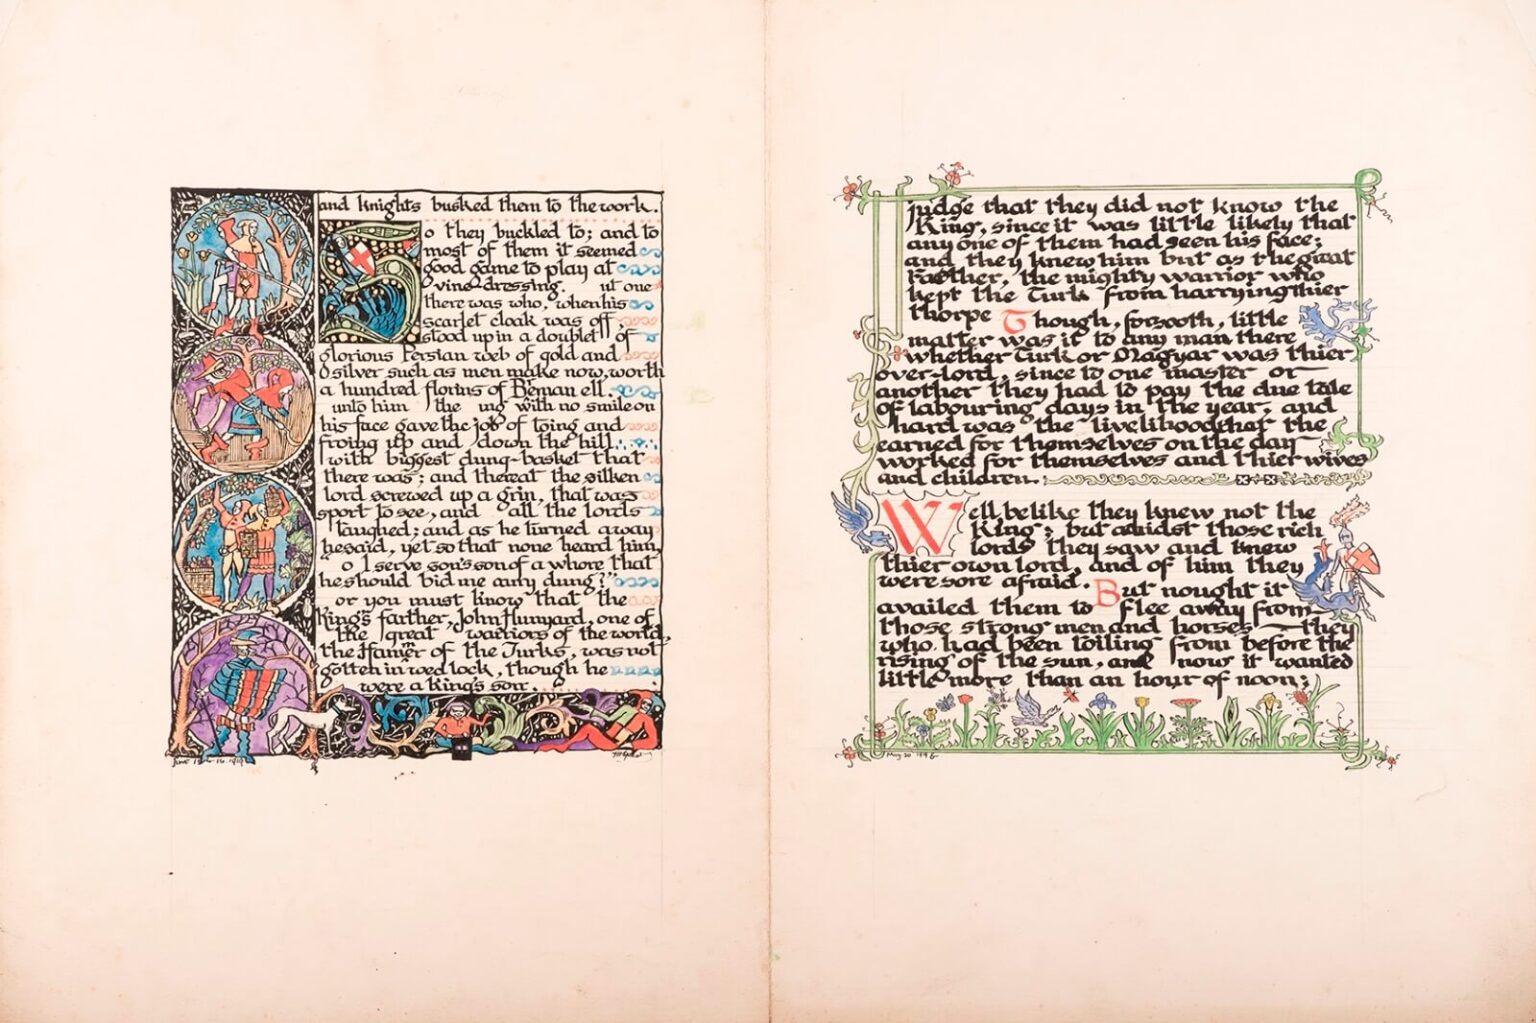 and knights busked them to the work.
So they buckled to; and to
most of them it seemed
good game to play at
vine-dressing. ut one
there was who, when his
scarlet cloak was off,
stood up in a doublet of
glorious Persian web of gold and
silver such as men make now, worth
a hundred florins of Beman ell.
unto him the ing with no smile on
his face gave the job of toing and
froing up and down the hill
with biggest dung-basket that
there was; and thereat the silken
lord screwed up a grin, that was
sport to see, and all the lords
laughed; and as he turned away
he said, yet so that none heard him,
o I serve son's son of a whore that
he should bid me carry dung?"
or you must know that the
King's farther, John Hunyard, one of
the great warriors of the world,
the Hamer of the Turks, was not
gotten in wedlock, though he
were a King's son.
judge that they did not know the
King, since it was little likely that
any one of them had seen his face;
and they knew him but as the great
Faether, the mighty warrior who
kept the Turk from harrying thier
thorpe Though, forsooth, little
matter was it to any man there
whether Turk or Magyar was thier
over-lord, since to one master or
another they had to pay the due tale
of labouring days in the year, and
hard was the livelihood that the
earned for themselves on the day
worked for themselves and thier wives
and children.
Well, belike they knew not the
King; but amidst those rich
lords they saw and knew
thier own lord, and of him they
were sore afraid. But nought it
availed them to flee away from
those strong men and horses—they
who had been toiling from before the
rising of the sun, and now it wanted
little more than an hour of noon;
May 20